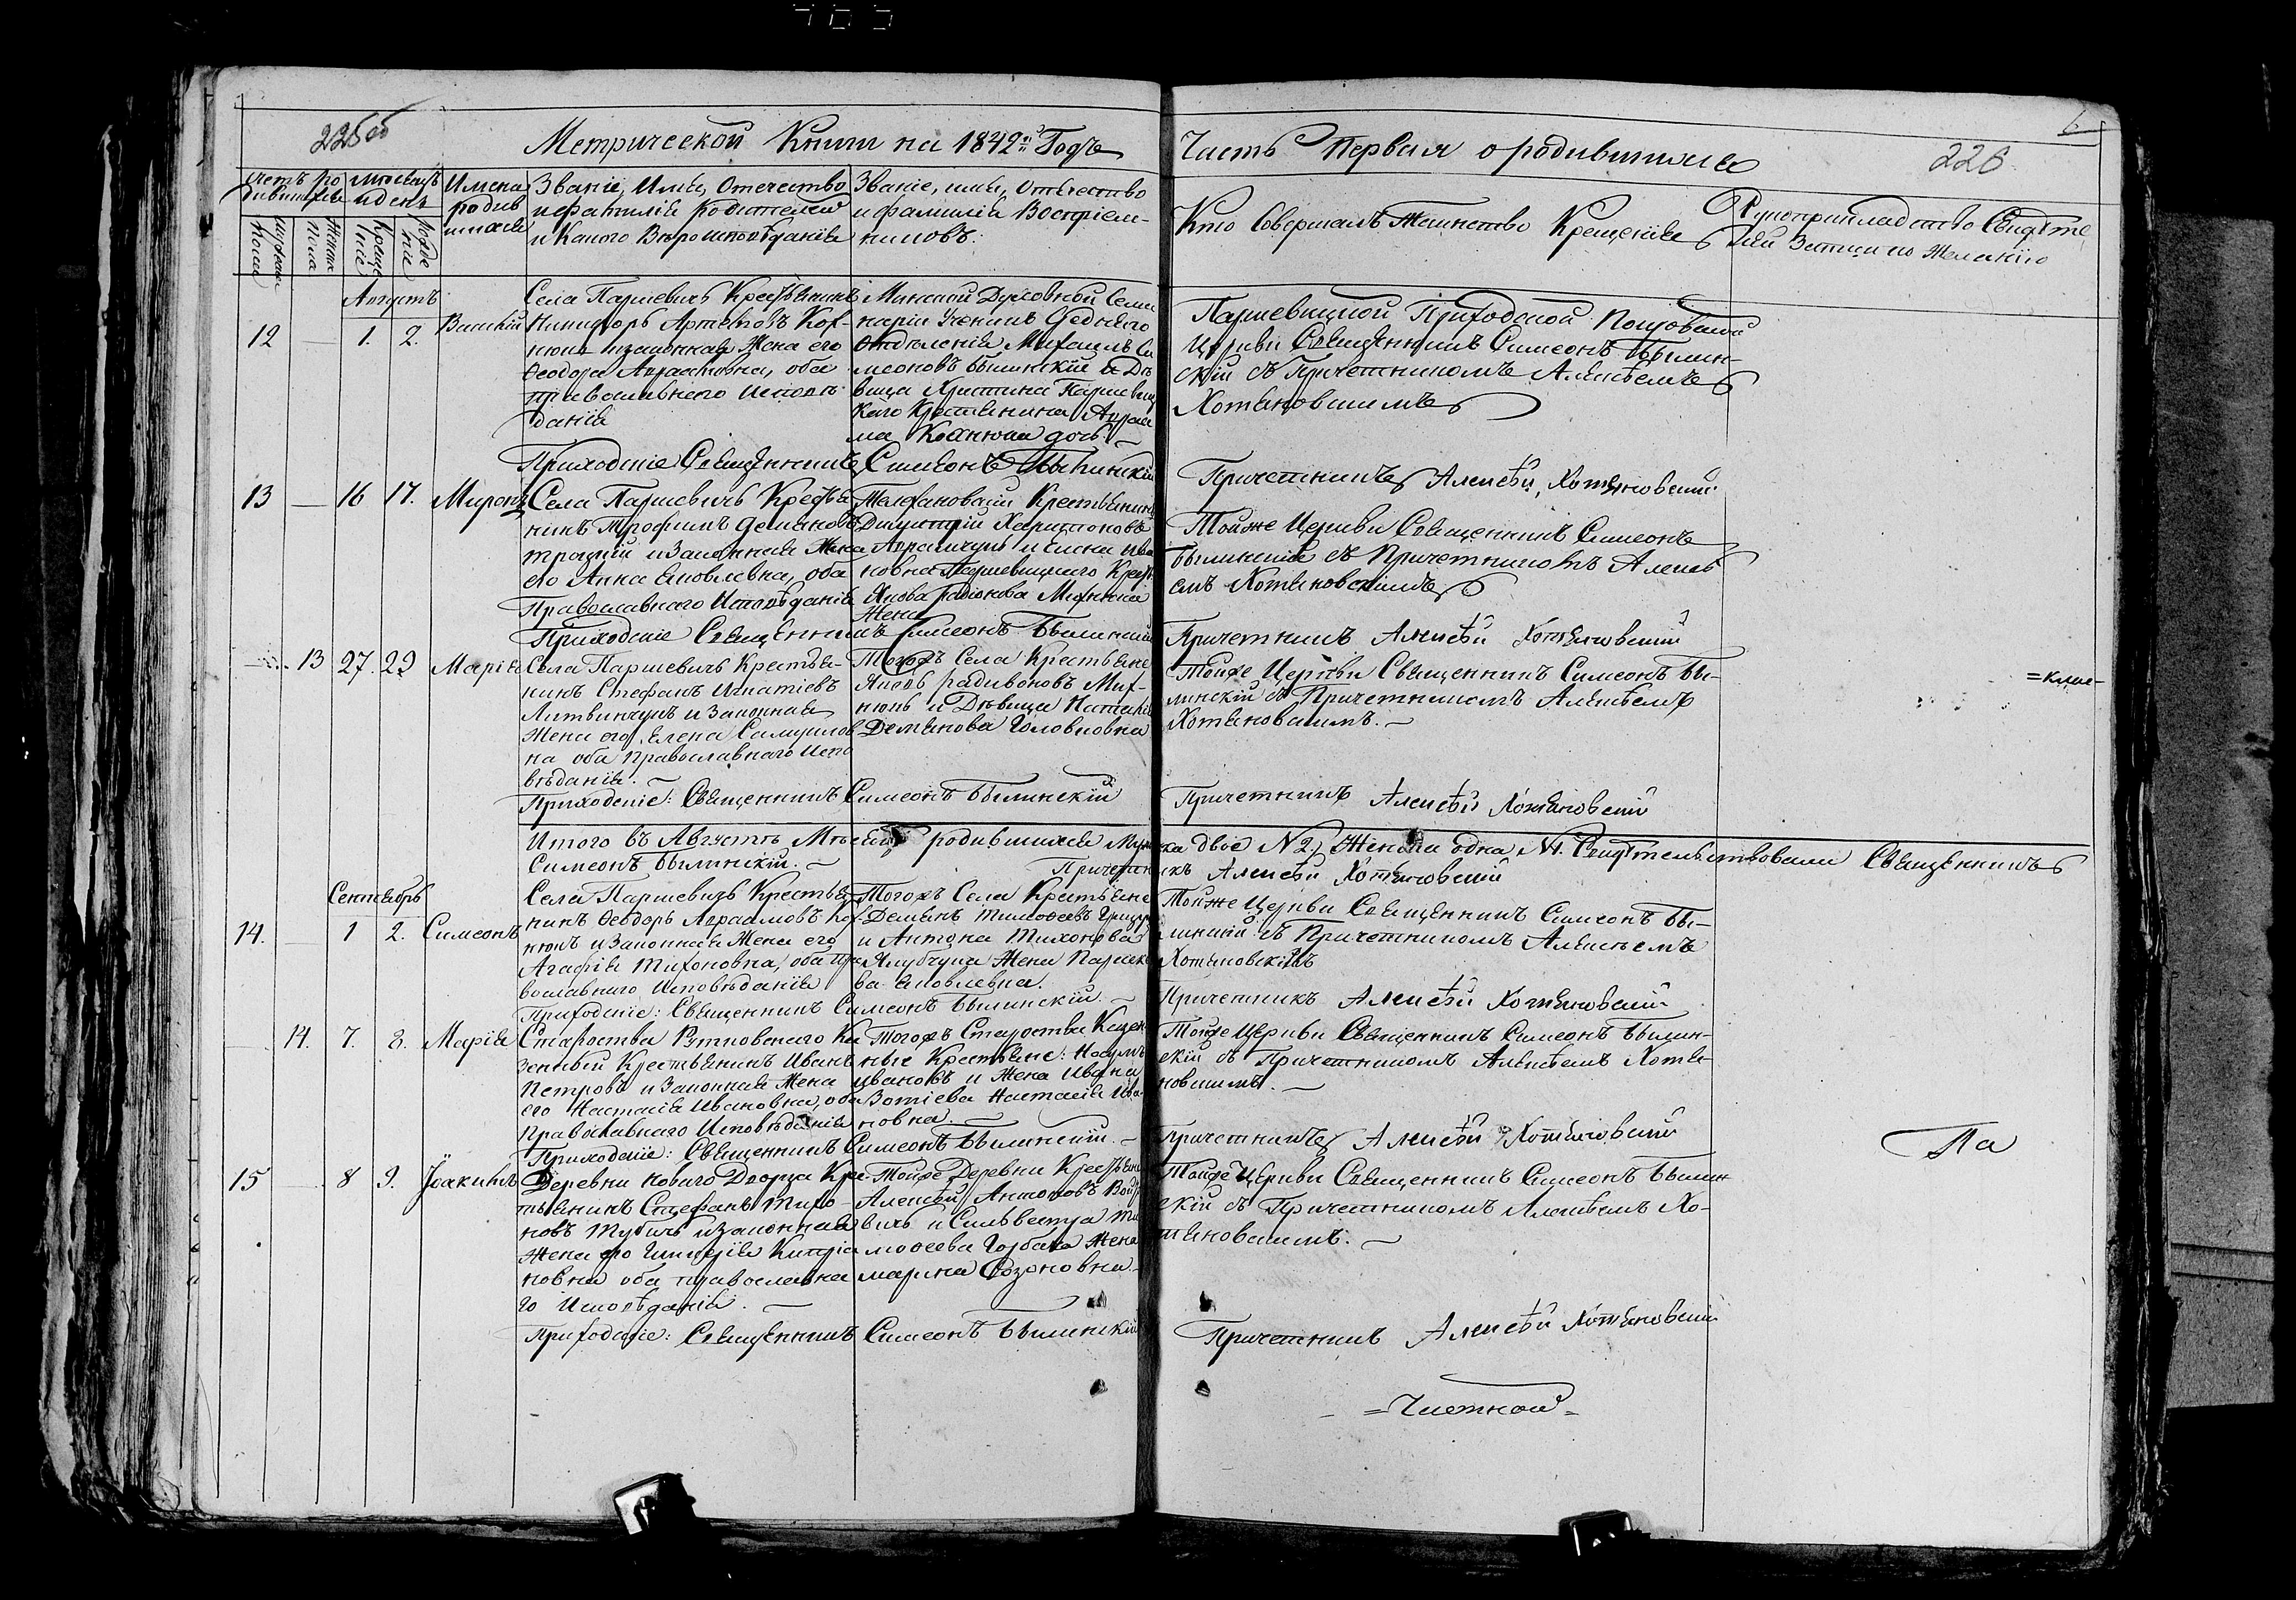 225об
Метрической Книги на 1842й Годъ
Часть Первая о родившихся
226
6
Счетъ ро
дившихся
Мѣсяцъ
и день
Мужеска
Пола
Женска
Пола
Креще
ніе
Рожде
ніе
Имена
родив
шихся
Званіе, Имя, Отечество
и фамилія Родителей
и Какого Вѣроисповѣданія
Званіе, имя, Отечество
и фамилія Воспріем-
никовъ.
Кто Совершалъ Таинство Крещенія
Рукоприкладство Свидѣте
лей Записи по Желанію
Августъ
12 — 1. 2. Василій
Села Паршевичъ Крестьянинъ
Никифоръ Артемовъ Кох-
нюкъ и законная Жена его
Ѳеодора оба
православнаго Исповѣ-
данія
Минской Духовной Семи
наріи Ученикъ Средняго
Отдѣленія Михаилъ Си
меоновъ Былинскій и Дѣ
вица Христина Паршевиц
каго Крестьянина Авраа
ма Кохнюка дочь. —
Паршевицкой Приходской Покровской
Церкви Священникъ Симеонъ Былин-
скій съ Причетникомъ Алексѣемъ
Хотяновскимъ
Приходскіе Священникъ Симеонъ Былинскій
Причетникъ Алексѣй Хотяновскій
13 — 16 17. Миронъ
Села Паршевичъ Крестья
нинъ Трофимъ Демяновъ
и Законная Жена
его Анна Яковлевна, оба
Православнаго Исповѣданія
Крестьянинъ
Димитрій Харитоновъ
Абрамчукъ и Елена Ива
новна Паршевицкаго Крест
Якова Радіонова Михнюка
Жена
Тойже Церкви Священникъ Симеонъ
Былинскій съ Причетникомъ Алексѣ
емъ Хотяновскимъ
Приходскіе Священникъ Симеонъ Былинскій
Причетникъ Алексѣй Хотяновскій
13 27. 29 Марія
Села Паршевичъ Крестья-
нинъ Стефанъ Игнатіевъ
Литвинчукъ и Законная
Жена его Елена Самуилов
на оба Православнаго Испо
вѣданія.
Тогожъ Села Крестьяне
Яковъ Радивоновъ Мих-
нюкъ и Дѣвица Наталія
Демянова Головковна
Тойже Церкви Священникъ Симеонъ Бы-
линскій съ Причетникомъ Алексѣемъ
Хотяновскимъ. —
Приходскіе: Священникъ Симеонъ Былинскій
Причетникъ Алексѣй Хотяновскій
Итого въ Августѣ Мѣсяцѣ родившихся Мужеска двое N 2, Женска одна, N 1. Свидѣтельствовали Священникъ
Симеонъ Былинскій. — Причетникъ Алексѣй Хотяновскій
Сентябрь
14. 1 2. Симеонъ
Села Паршевичъ Крестья
нинъ Ѳеодоръ Авраамовъ Кох-
нюкъ и Законная Жена его
Агафія Тихоновна, оба Пра
вославнаго Исповѣданія
Тогожъ Села Крестьяне
Демянъ Тимоѳеевъ
и Антона Тихонова
Якубчука Жена Параске
ва Яковлевна.
Тойже Церкви Священникъ Симеонъ Бы-
линскій съ Причетникомъ Алексѣемъ
Хотяновскимъ
Приходскіе: Священникъ Симеонъ Былинскій. —
Причетникъ Алексѣй Хотяновскій
14. 7. 8. Марія
Староства Ка
зенный Крестьянинъ Иванъ
Петровъ и Законная Жена
его Настасія Ивановна, оба
Православнаго Исповѣданія
Тогожъ Староства Казен
ные Крестьяне: Наумъ
Ивановъ и Жена Ивана
Настасія Ива-
новна. —
Тойже Церкви Священникъ Симеонъ Былин-
скій съ Причетникомъ Алексѣемъ Хотя-
новскимъ. —
Приходскіе: Священникъ Симеонъ Былинскій. —
Причетникъ Алексѣй Хотяновскій
15 8 9. Іоакимъ
Деревни Новаго Дворца Кре-
стьянинъ Стефанъ Тихо
новъ и законная
Жена его Гликерія Кипріа
новна оба православна
го Исповѣданія. —
Тойже Деревни Крестьяни
Алексѣй Антоновъ
и Сильвестра Ти
моѳеева Горбача Жена
Марина Созоновна. —
Тойже Церкви Священникъ Симеонъ Былин
скій съ Причетникомъ Алексѣемъ Хо-
тяновскимъ. —
Приходскіе: Священникъ Симеонъ Былинскій
Причетникъ Алексѣй Хотяновскій
Па